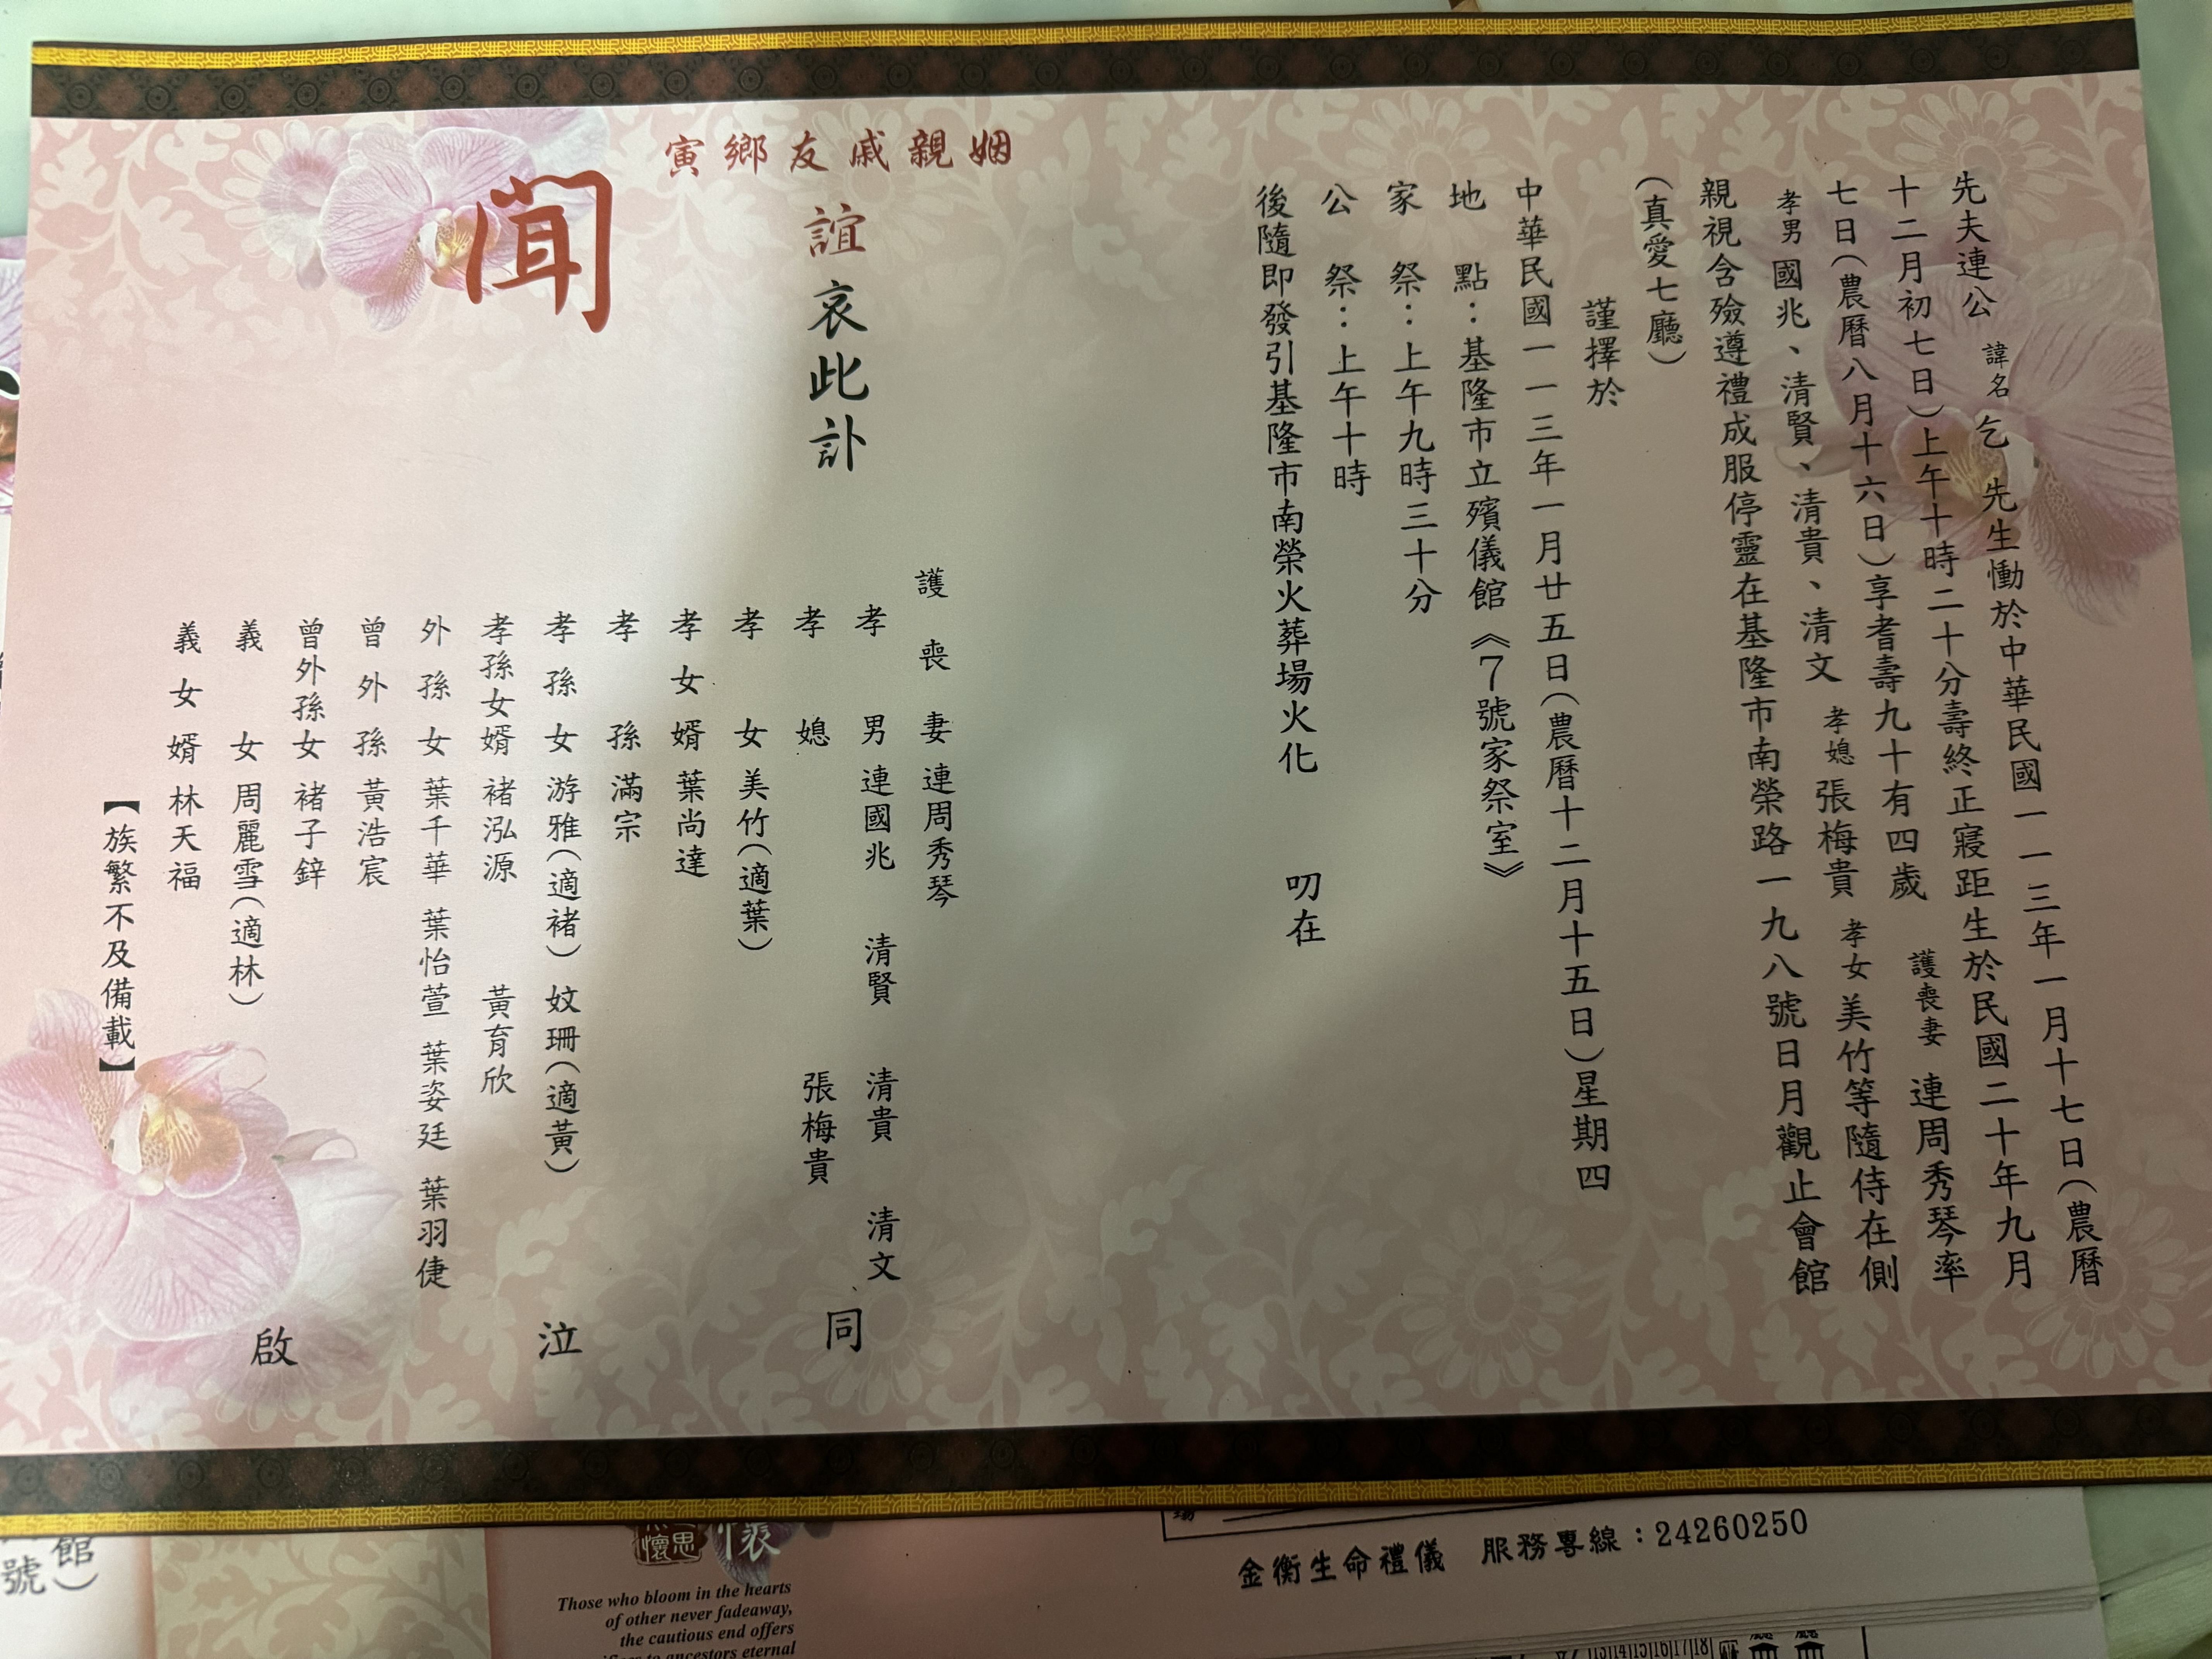 先夫連公 諱名 乞 先生慟於中華民國一一三年一月十七日(農曆
十二月初七日)上午十時二十分壽終正寢距生於民國二十年九月
七日(農曆八月十六日)享耆壽九十有四歲 護喪妻 連周秀琴率
孝男 國兆、清賢、清貴、清文 孝媳 張梅貴 孝女 美竹等隨侍在側
親視含殮遵禮成服停靈在基隆市南榮路一九八號日月觀止會館
(真愛七廳)
謹擇於
中華民國一一三年一月廿五日(農曆十二月十五日)星期四
地 點：基隆市立殯儀館《7號家祭室》
家 祭：上午九時三十分
公 祭：上午十時
後隨即發引基隆市南榮火葬場火化 叨在
姻親戚友鄉寅
誼哀此訃
聞
護喪妻 連周秀琴
孝男 連國兆 清賢 清貴 清文
孝媳 張梅貴
孝女 美竹(適葉)
孝女婿 葉尚達
孝孫 滿宗
孝孫女 游雅(適褚) 妏珊(適黃)
孝孫女婿 褚泓源 黃育欣
外孫女 葉千華 葉怡萱 葉姿廷 葉羽倢
曾外孫 黃浩宸
曾外孫女 褚子鋅
義女 周麗雪(適林)
義女婿 林天福
同泣啟
【族繁不及備載】
館)
號
懷思
懷
Those who bloom in the hearts
of other never fadeaway,
the cautious end offers
ancestors eternal
金衡生命禮儀 服務專線：24260250
13|14|15|16|17|18